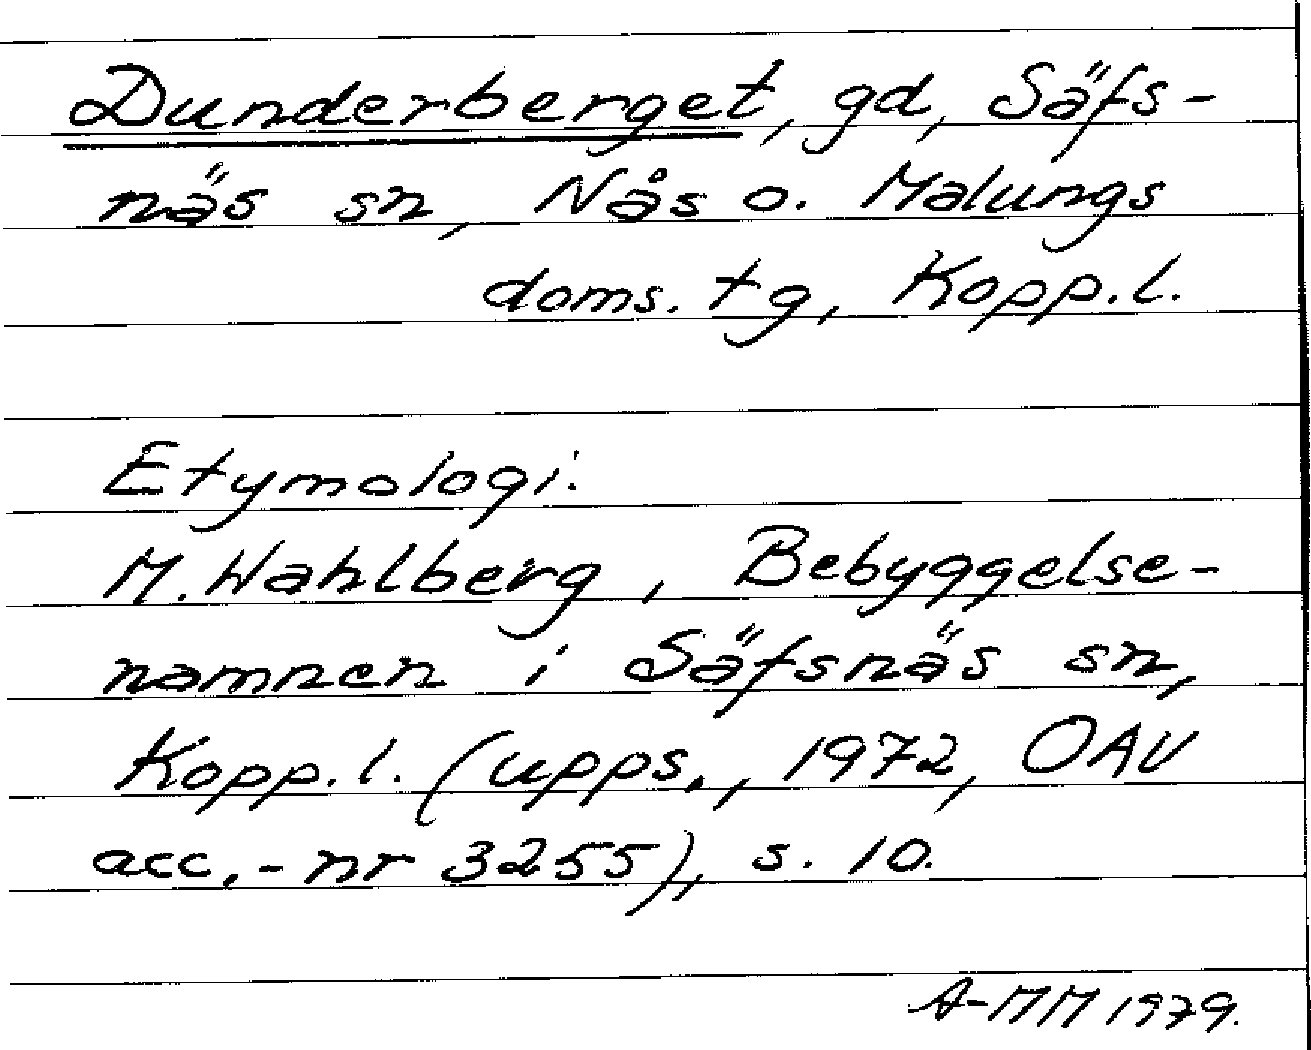 Dunderberget, gd, Säfs-
näs sn, Nås o. Malungs
doms. tg, Kopp.l.
Etymologi:
M. Wahlberg, Bebyggelse-
namnen i Säfsnäs sn,
Kopp.l. (upps., 1972, OAU
acc.-nr 3255), s. 10.
A-MM 1979.